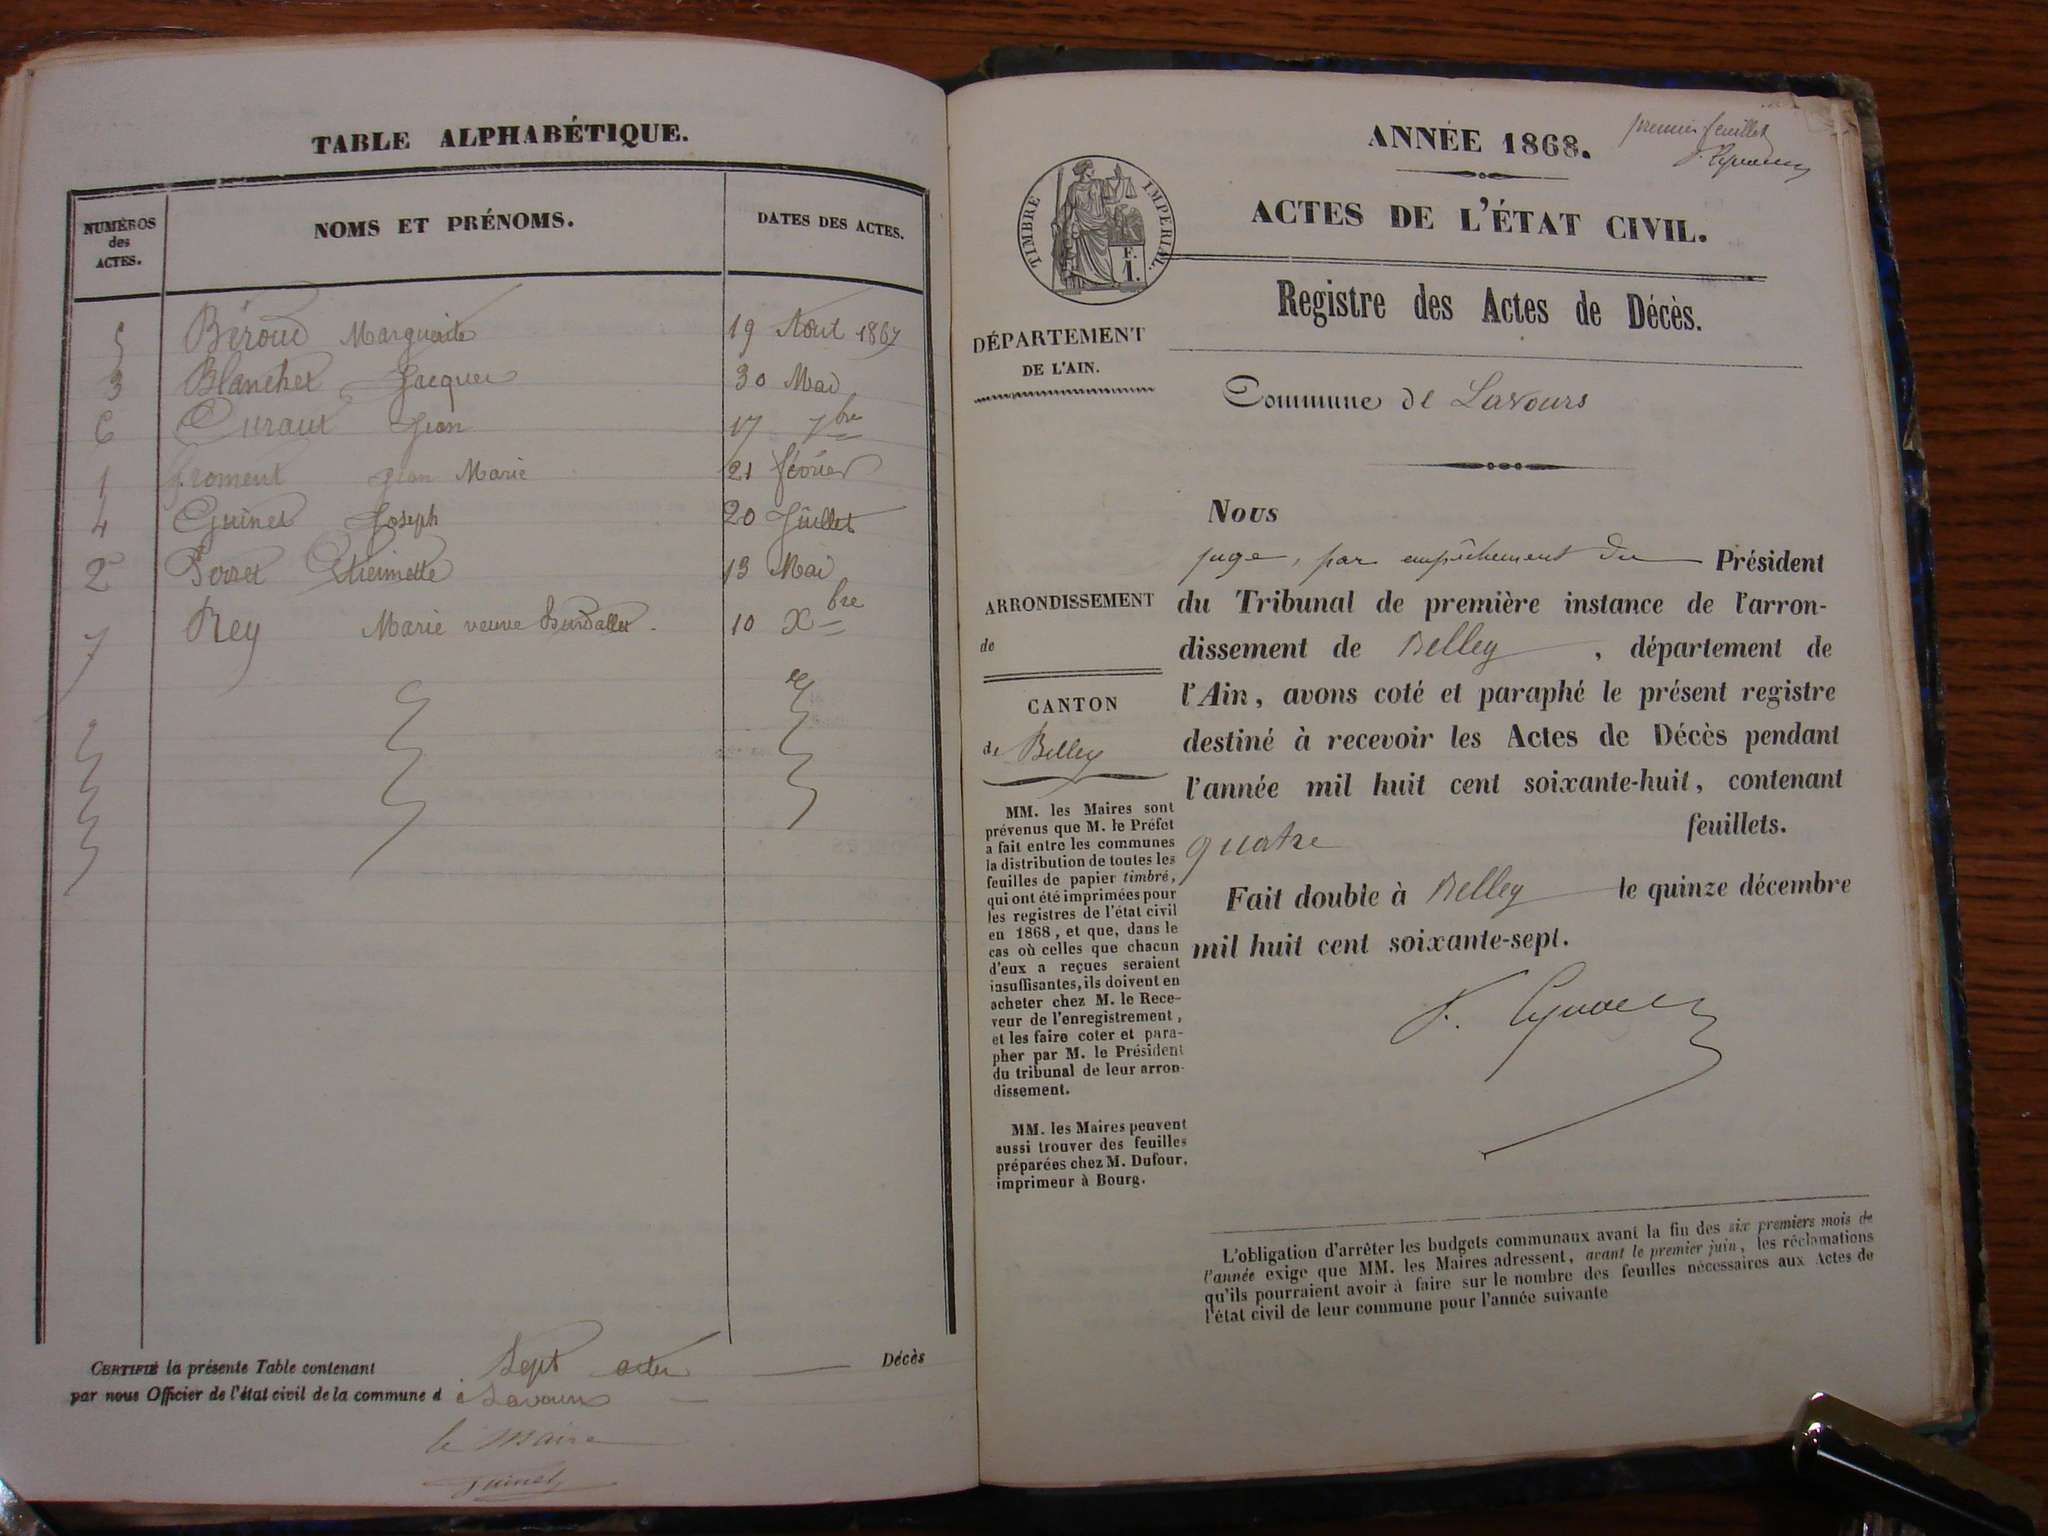 TABLE ALPHABÉTIQUE.
NUMÉROS
des
ACTES.
NOMS ET PRÉNOMS.
DATES DES ACTES.
5 Béroud Marguerite 19 Aout 1867
3 Blanchet Jacques 30 Mai
6 Curaux Jean 17 7bre
1 froment Jean Marie 21 février
4 Guinet Joseph 20 Juillet
2 Perret Etiennette 13 Mai
7 Rey Marie veuve 10 Xbre
CERTIFIÉ la présente Table contenant Sept actes Décès
par nous Officier de l'état civil de la commune d e Lavours
le maire
Guinet
premier feuillet
ANNÉE 1868.
ACTES DE L'ÉTAT CIVIL.
TIMBRE IMPÉRIAL.
F.
1.
Registre des Actes de Décès.
DÉPARTEMENT
DE L'AIN.
Commune de Lavours
ARRONDISSEMENT
de
CANTON
de Belley
MM. les Maires sont
prévenus que M. le Préfet
a fait entre les communes
la distribution de toutes les
feuilles de papier timbré,
qui ont été imprimées pour
les registres de l'état civil
en 1868, et que, dans le
cas où celles que chacun
d'eux a reçues seraient
insuffisantes, ils doivent en
acheter chez M. le Rece-
veur de l'enregistrement,
et les faire coter et para-
pher par M. le Président
du tribunal de leur arron-
dissement.
MM. les Maires peuvent
aussi trouver des feuilles
préparées chez M. Dufour,
imprimeur à Bourg.
Nous
juge, par empêchement du Président
du Tribunal de première instance de l'arron-
dissement de Belley, département de
l'Ain, avons coté et paraphé le présent registre
destiné à recevoir les Actes de Décès pendant
l'année mil huit cent soixante-huit, contenant
quatre feuillets.
Fait double à Belley le quinze décembre
mil huit cent soixante-sept.
L'obligation d'arrêter les budgets communaux avant la fin des six premiers mois de
l'année exige que MM. les Maires adressent, avant le premier juin, les réclamations
qu'ils pourraient avoir à faire sur le nombre des feuilles nécessaires aux Actes de
l'état civil de leur commune pour l'année suivante